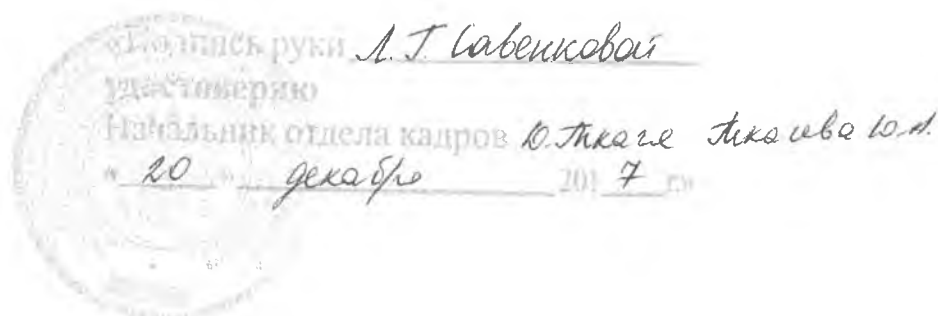 «Подпись руки Л.Г. Савенковой
удостоверяю
Начальник отдела кадров Ю.А.
« 20 » декабря 2017 г.»